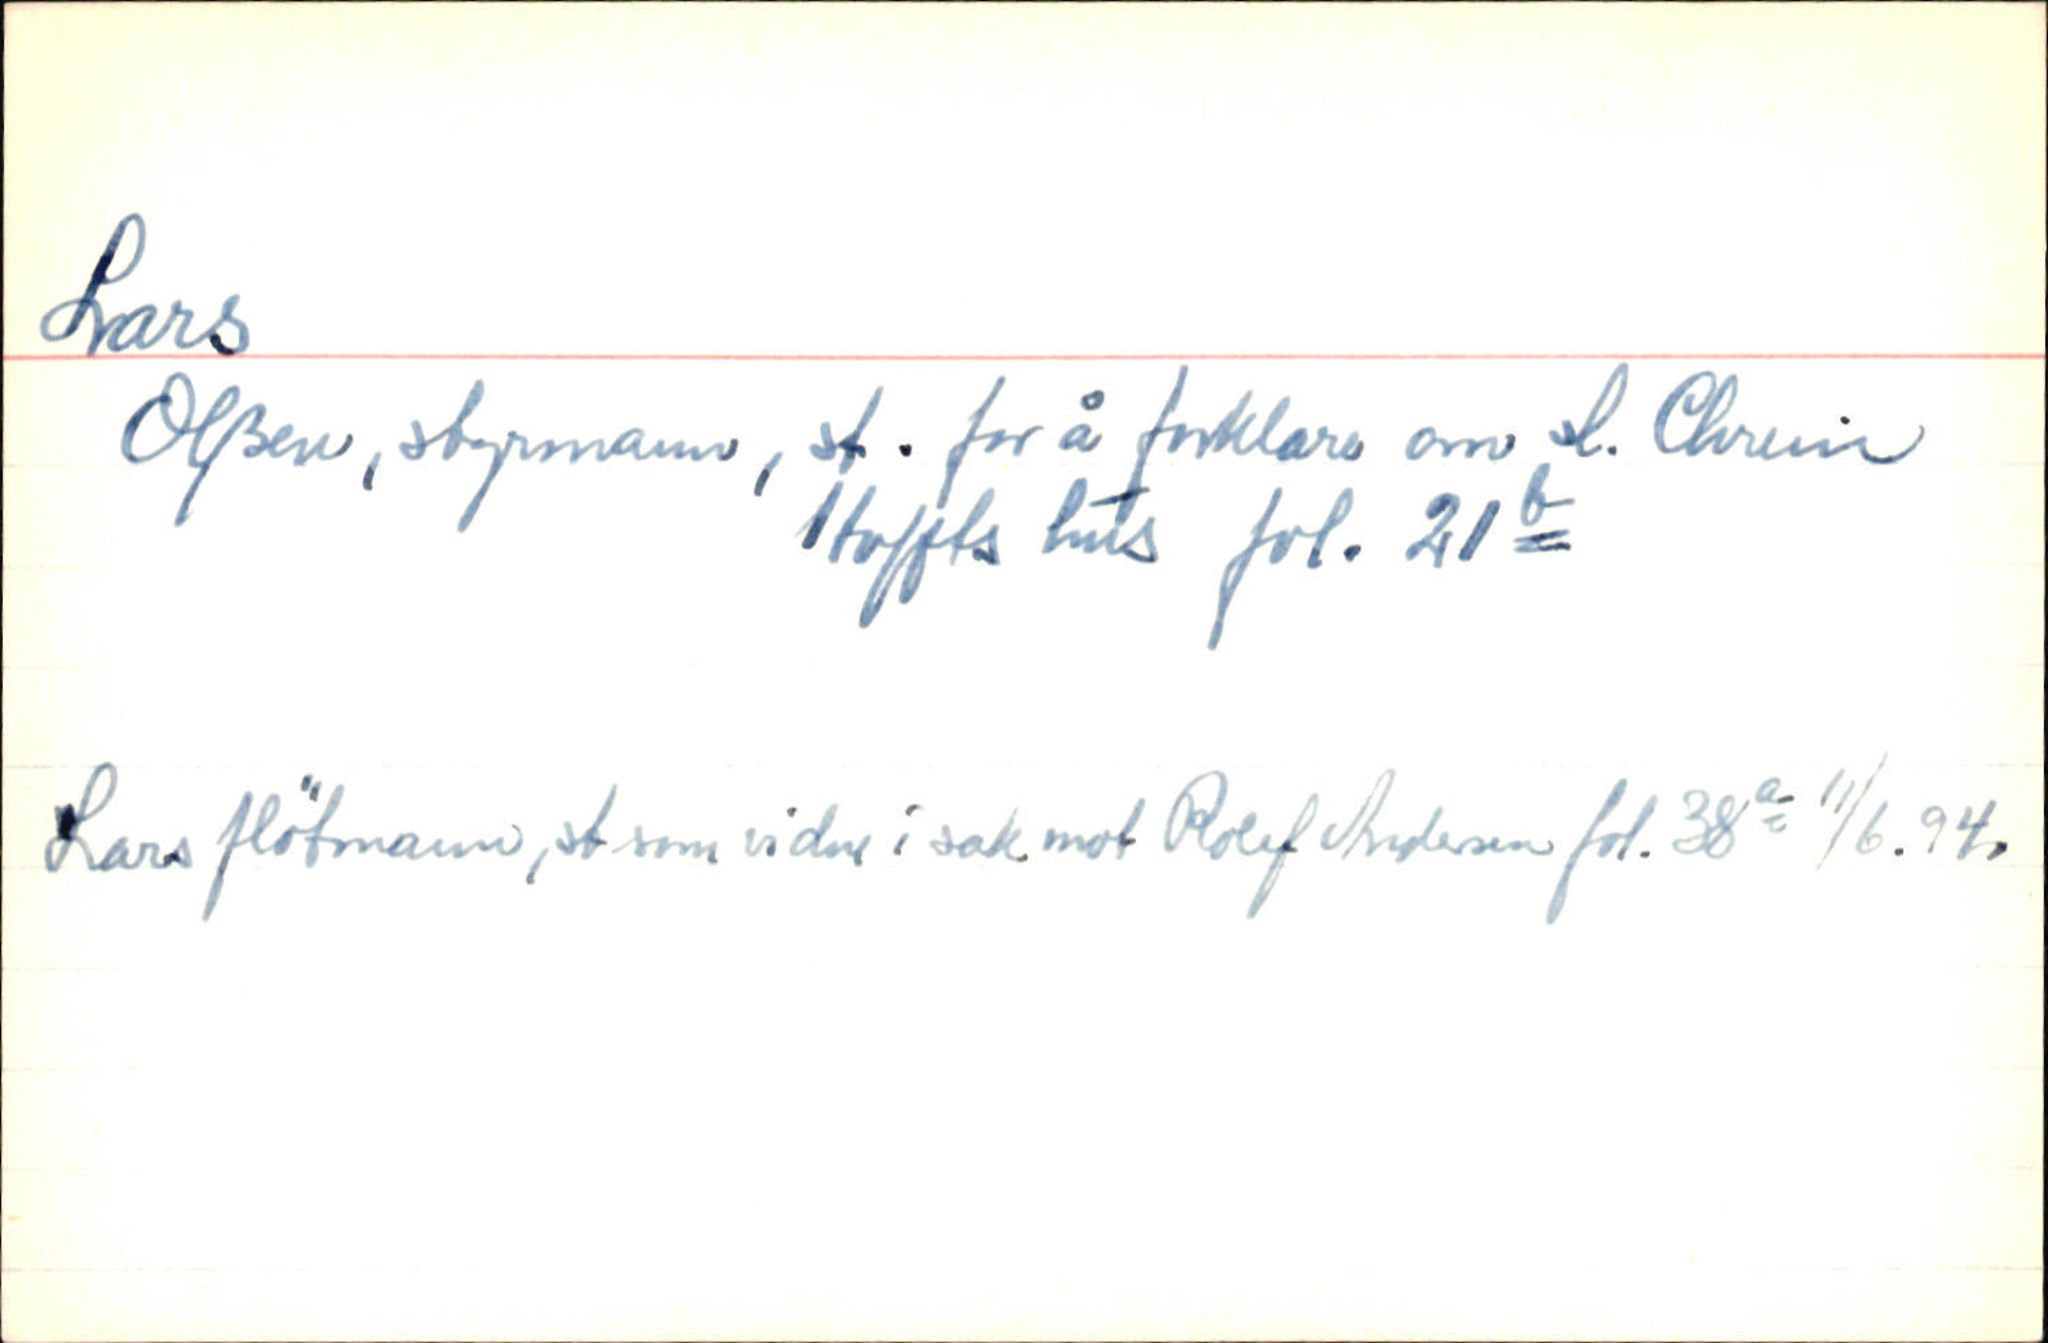 Lars
Olßen, styrmann, st. for å forklare om sl.
hus fol. 21 b
Lars flötmann, st som vidne i sak mot Rolef Andersen fol. 38 a 11/6. 94.